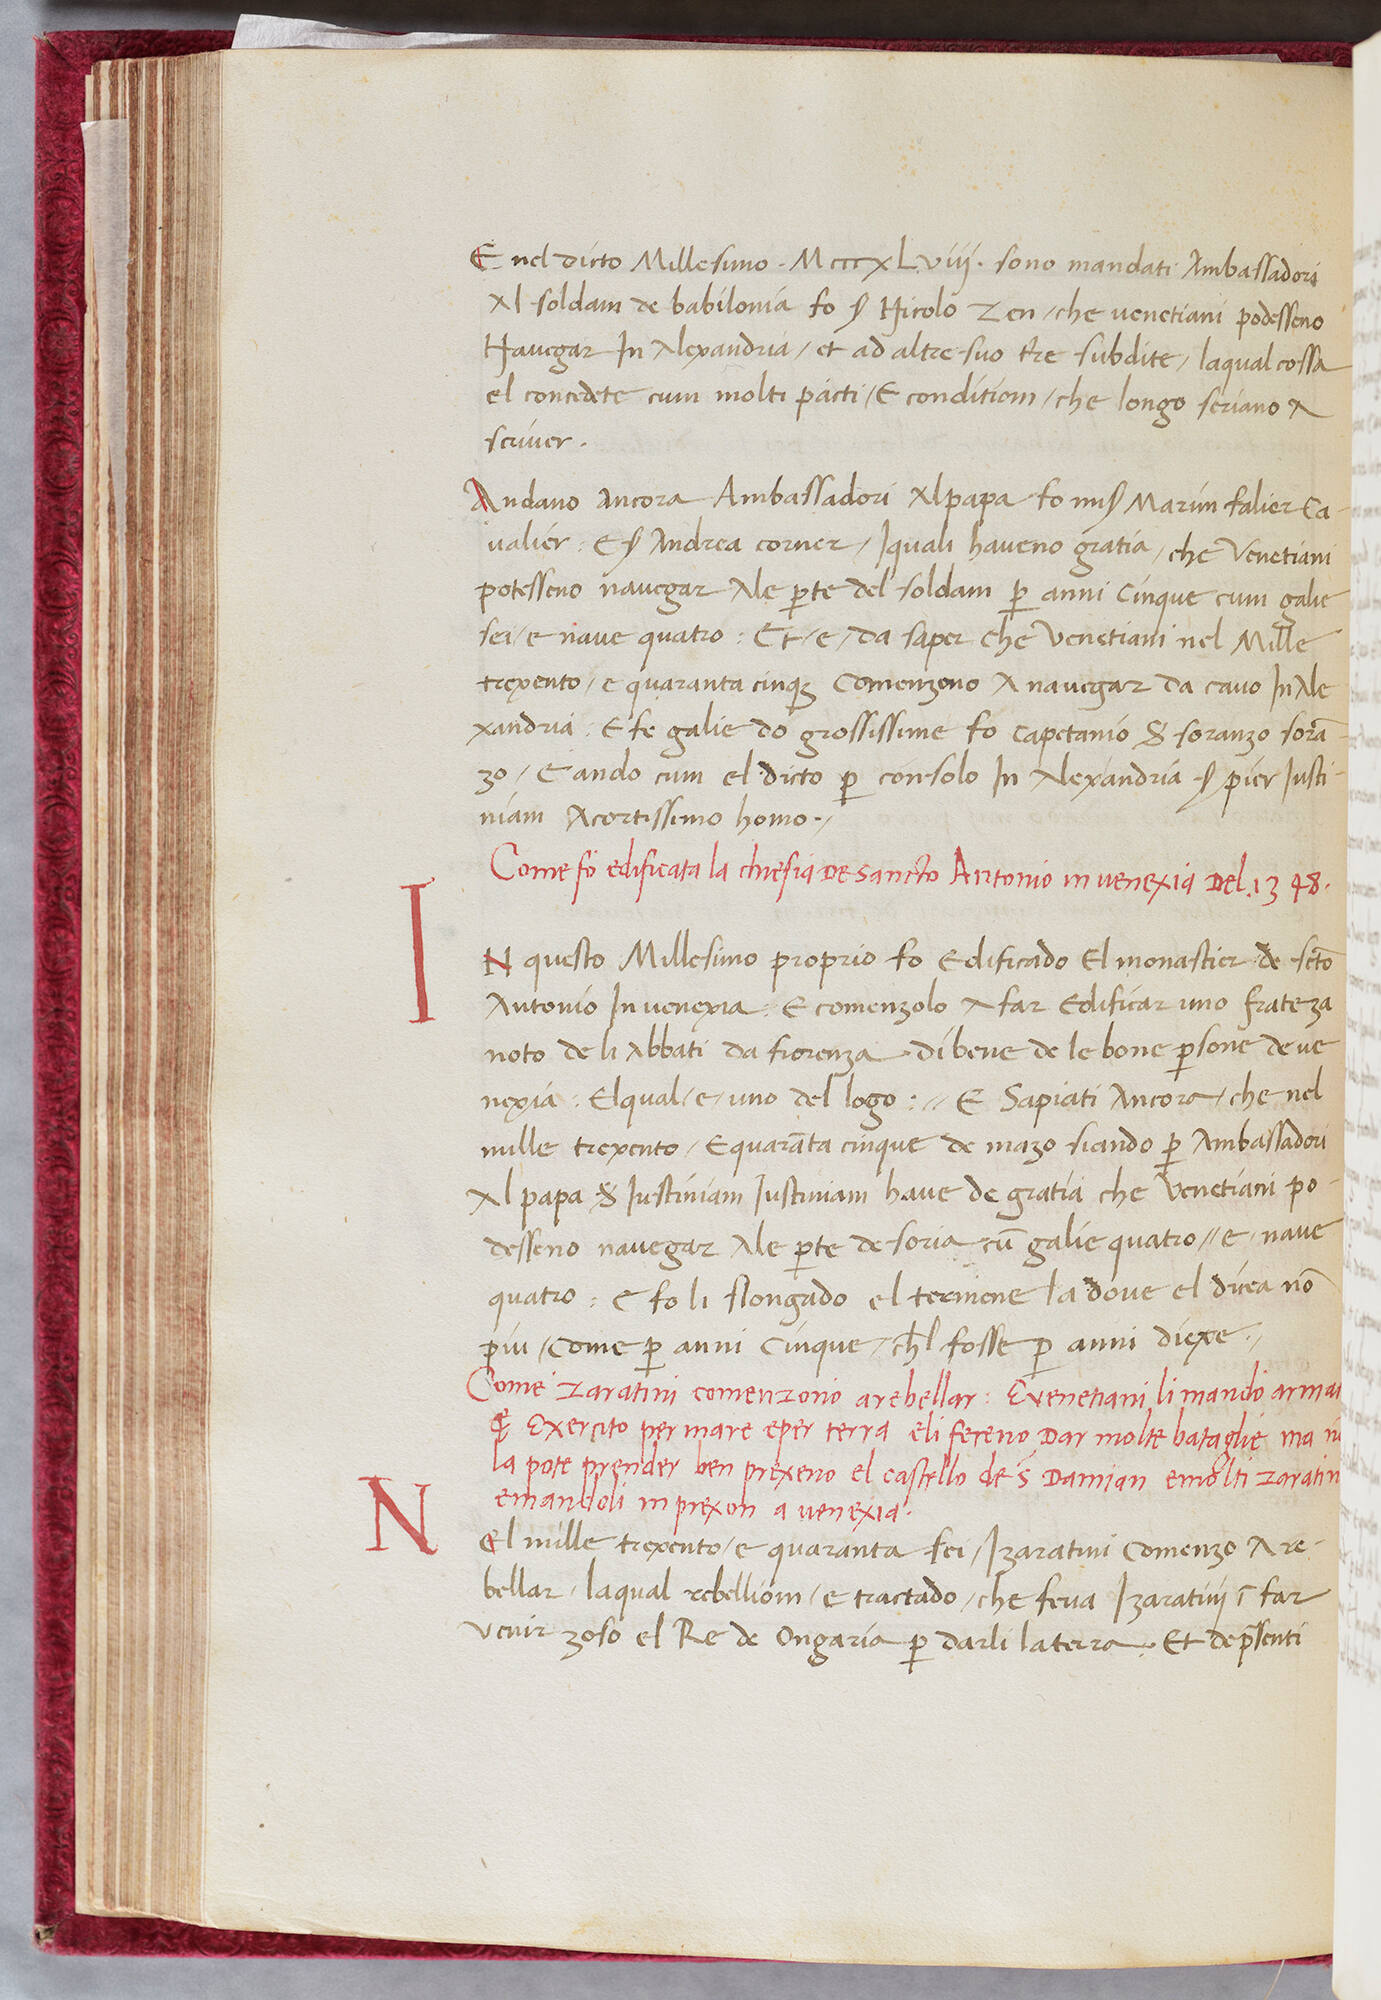 E nel dicto Millesimo . McccxLviij . sono mandati Ambassadori
Al soldam de babilonia fo ẜ Nicolò Zen / che venetiani podesseno
Navegar In Alexandria / et ad altre suo t̄re subdite / laqual cossa
el concedete cum molti pacti / E conditiom / che longo seriano A
scriver .
Andano Ancora Ambassadori Al papa fo miẜ Marin falier Ca-
valier : E ẜ Andrea corner / Iquali haveno gratia / che Venetiani
potesseno navegar Ale ꝑte del soldam ꝑ anni Cinque cum galie
sei / e nave quatro : Et / e / da saper che Venetiani nel Mille
trexento / e quaranta cinqꝫ Comenzono A navegar da cavo In Ale
xandria : E fe galie do grossissime fo Capetanio ẜ soranzo sorā-
zo / E ando cum el dicto ꝑ consolo In Alexandria ẜ pier Iusti-
niam Acortissimo homo . /
Come fò edificata la chiesia De Sancto Antonio in venexia Del . 1348 .
IN questo Millesimo proprio fo Edificado El monastier de scto
Antonio In venexia : E comenzolo A far Edificar uno frate za
noto de li Abbati da fiorenza di bene de le bone ꝑsone de ve
nexia : Elqual / e / uno del logo : // E Sapiati Ancora / che nel
mille trexento / E quarāta cinque de mazo siando ꝑ Ambassadori
Al papa ẜ Iustiniam Iustiniam have de gratia che Venetiani po-
desseno navegar Ale ꝑte de soria cū galie quatro // e nave
quatro : E fo li slongado el termene la dove el dicea nō
piu / Come ꝑ anni Cinque / chl fosse ꝑ anni diexe . /
Come zaratini comenzono a rebellar : E venetiani li mando arma
Exercito per mare e per terra e li feceno Dar molte bataglie ma
la pote prender ben prexeno el castello de s̄ Damian e molti zaratin
e mandoli in prexon a venexia .
NEl mille trexento / e quaranta sei / I zaratini Comenzo A re-
bellar / laqual rebelliom / e tractado / che feva I zaratinj ī far
venir zoso el Re de Ongaria ꝑ darli la terra . Et de p̄senti